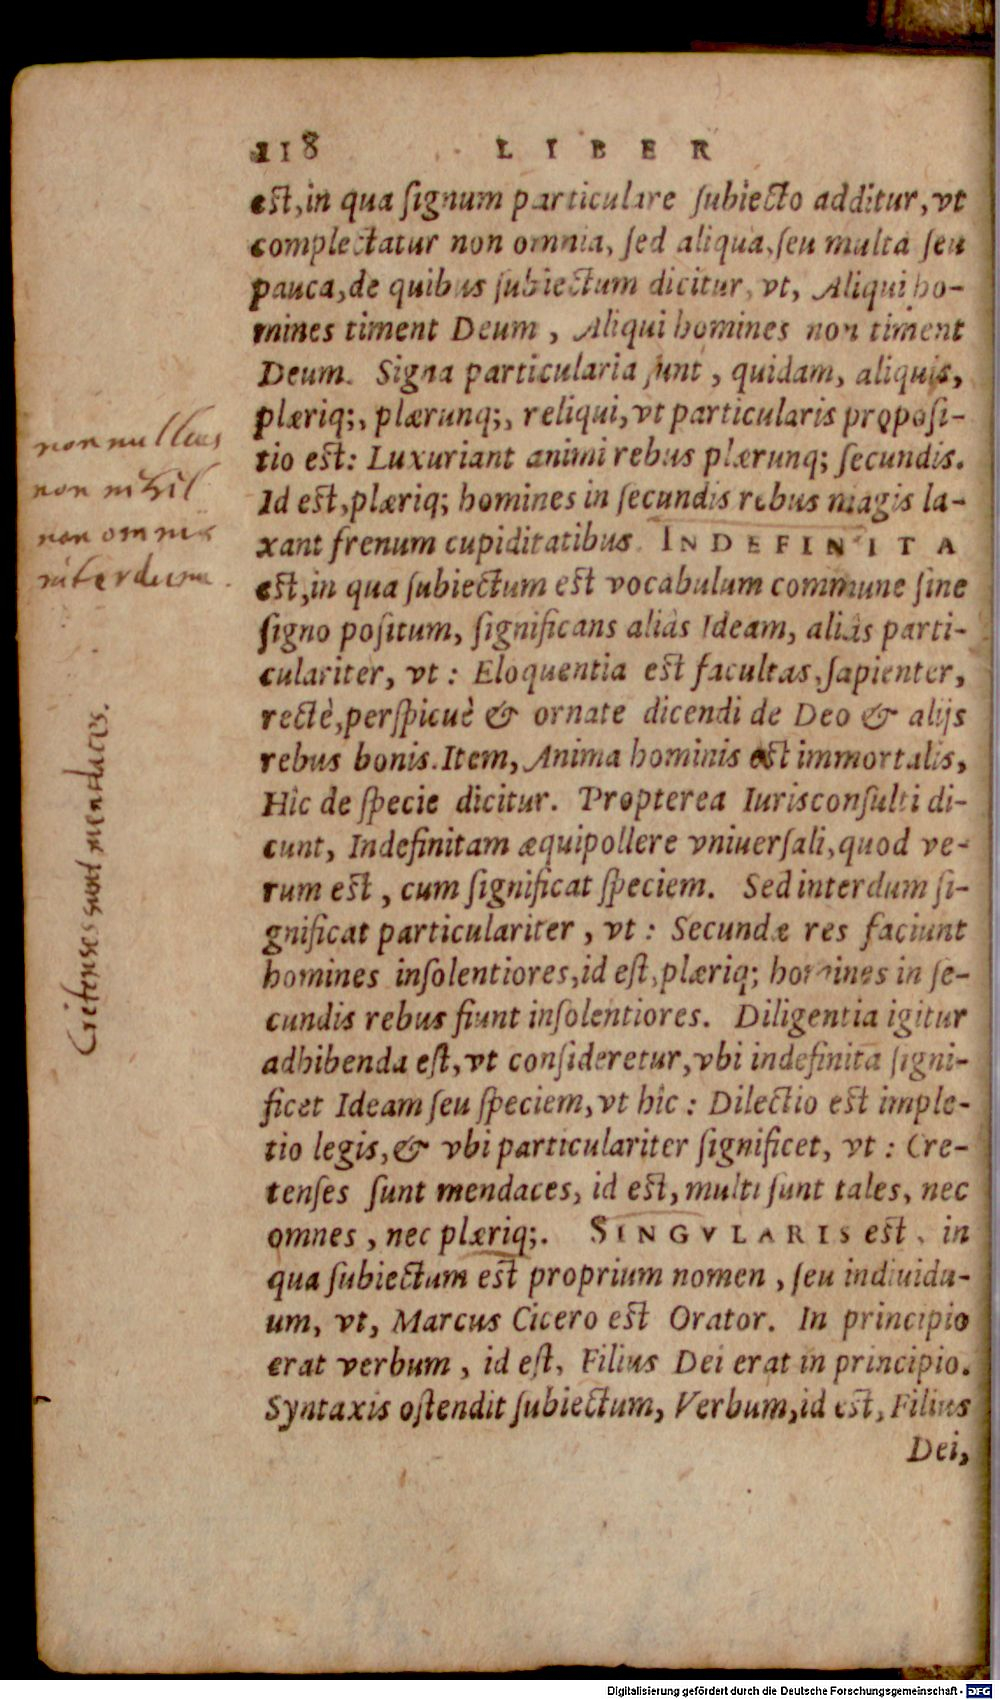 118 LIBER
est, in qua ſignum particulare ſubiecto additur, vt
complectatur non omnia, ſed aliqua, ſeu multa ſeu
pauca, de quibus ſubiectum dicitur, vt, Aliqui ho-
mines timent Deum, Aliqui homines non timent
Deum. Signa particularia ſunt, quidam, aliquis,
plæriq;, plærunq;, reliqui, vt particularis propoſi-
tio est: Luxuriant animi rebus plærunq; ſecundis.
Id est, plæriq; homines in ſecundis rebus magis la-
xant frenum cupiditatibus. INDEFINITA
est, in qua ſubiectum est vocabulum commune ſine
ſigno poſitum, ſignificans aliàs Ideam, aliàs parti-
culariter, vt: Eloquentia est facultas, ſapienter,
rectè, perſpicuè & ornate dicendi de Deo & alijs
rebus bonis. Item, Anima hominis est immortalis,
Hîc de ſpecie dicitur. Propterea Iurisconſulti di-
cunt, Indefinitam æquipollere vniuerſali, quod ve-
rum est, cum ſignificat ſpeciem. Sed interdum ſi-
gnificat particulariter, vt: Secundæ res faciunt
homines inſolentiores, id eſt, plæriq; homines in ſe-
cundis rebus fiunt inſolentiores. Diligentia igitur
adhibenda eſt, vt conſideretur, vbi indefinita ſigni-
ficet Ideam ſeu ſpeciem, vt hîc: Dilectio est imple-
tio legis, & vbi particulariter ſignificet, vt: Cre-
tenſes ſunt mendaces, id est, multi ſunt tales, nec
omnes, nec plæriq;. SINGVLARIS est, in
qua ſubiectum est proprium nomen, ſeu indiuidu-
um, vt, Marcus Cicero est Orator. In principio
erat verbum, id eſt, Filius Dei erat in principio.
Syntaxis oſtendit ſubiectum, Verbum, id est, Filius
Dei,
non nullus
non nihil
non omnis
interdum.
Cretenses sunt mendaces.
Digitalisierung gefördert durch die Deutsche Forschungsgemeinschaft - DFG